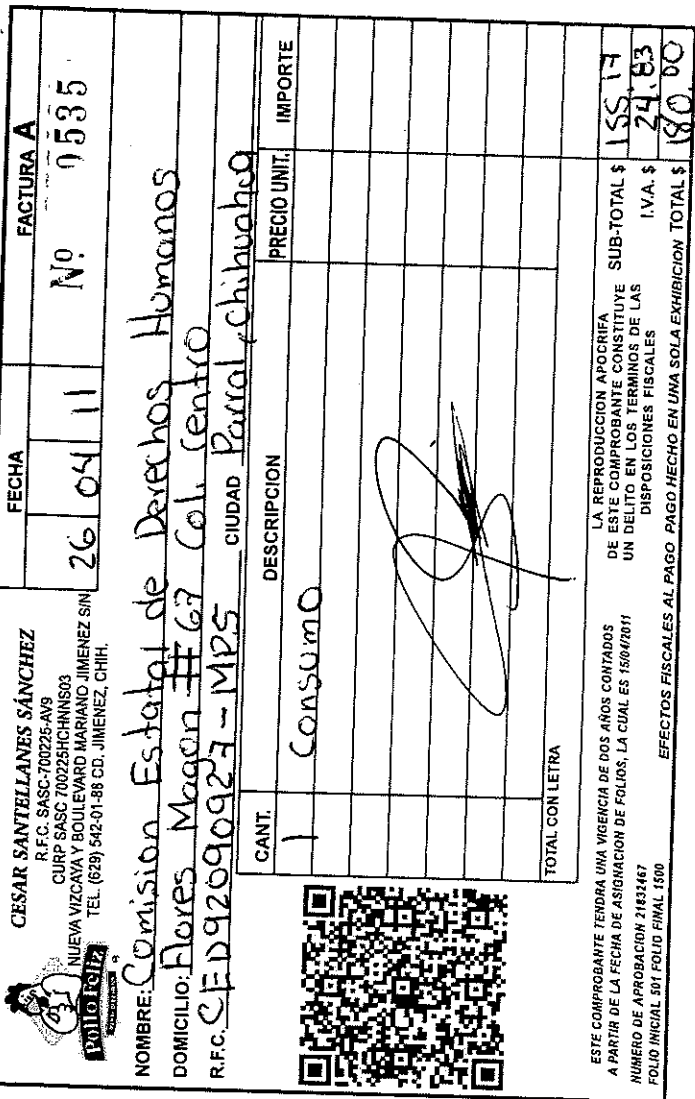 CESAR SANTELLANES SÁNCHEZ
R.F.C. SASC-700225-AV9
CURP SASC 700225HCHNNS03
NUEVA VIZCAYA Y BOULEVARD MARIANO JIMENEZ S/N
TEL. (629) 542-01-88 CD. JIMENEZ, CHIH.
Pollo Feliz
FECHA
26 04 11
FACTURA A
Nº 0535
NOMBRE: Comision Estatal de Derechos Humanos
DOMICILIO: Flores Magon # 67 Col. Centro
R.F.C. CED92090927-MPS CIUDAD Parral, Chihuahua
CANT. DESCRIPCION PRECIO UNIT. IMPORTE
1 Consumo
TOTAL CON LETRA
ESTE COMPROBANTE TENDRA UNA VIGENCIA DE DOS AÑOS CONTADOS
A PARTIR DE LA FECHA DE ASIGNACION DE FOLIOS, LA CUAL ES 15/04/2011
NUMERO DE APROBACION 21832467
FOLIO INICIAL 501 FOLIO FINAL 1500
LA REPRODUCCION APOCRIFA
DE ESTE COMPROBANTE CONSTITUYE
UN DELITO EN LOS TERMINOS DE LAS
DISPOSICIONES FISCALES
SUB-TOTAL $ 155.17
I.V.A. $ 24.83
EFECTOS FISCALES AL PAGO PAGO HECHO EN UNA SOLA EXHIBICION TOTAL $ 180.00